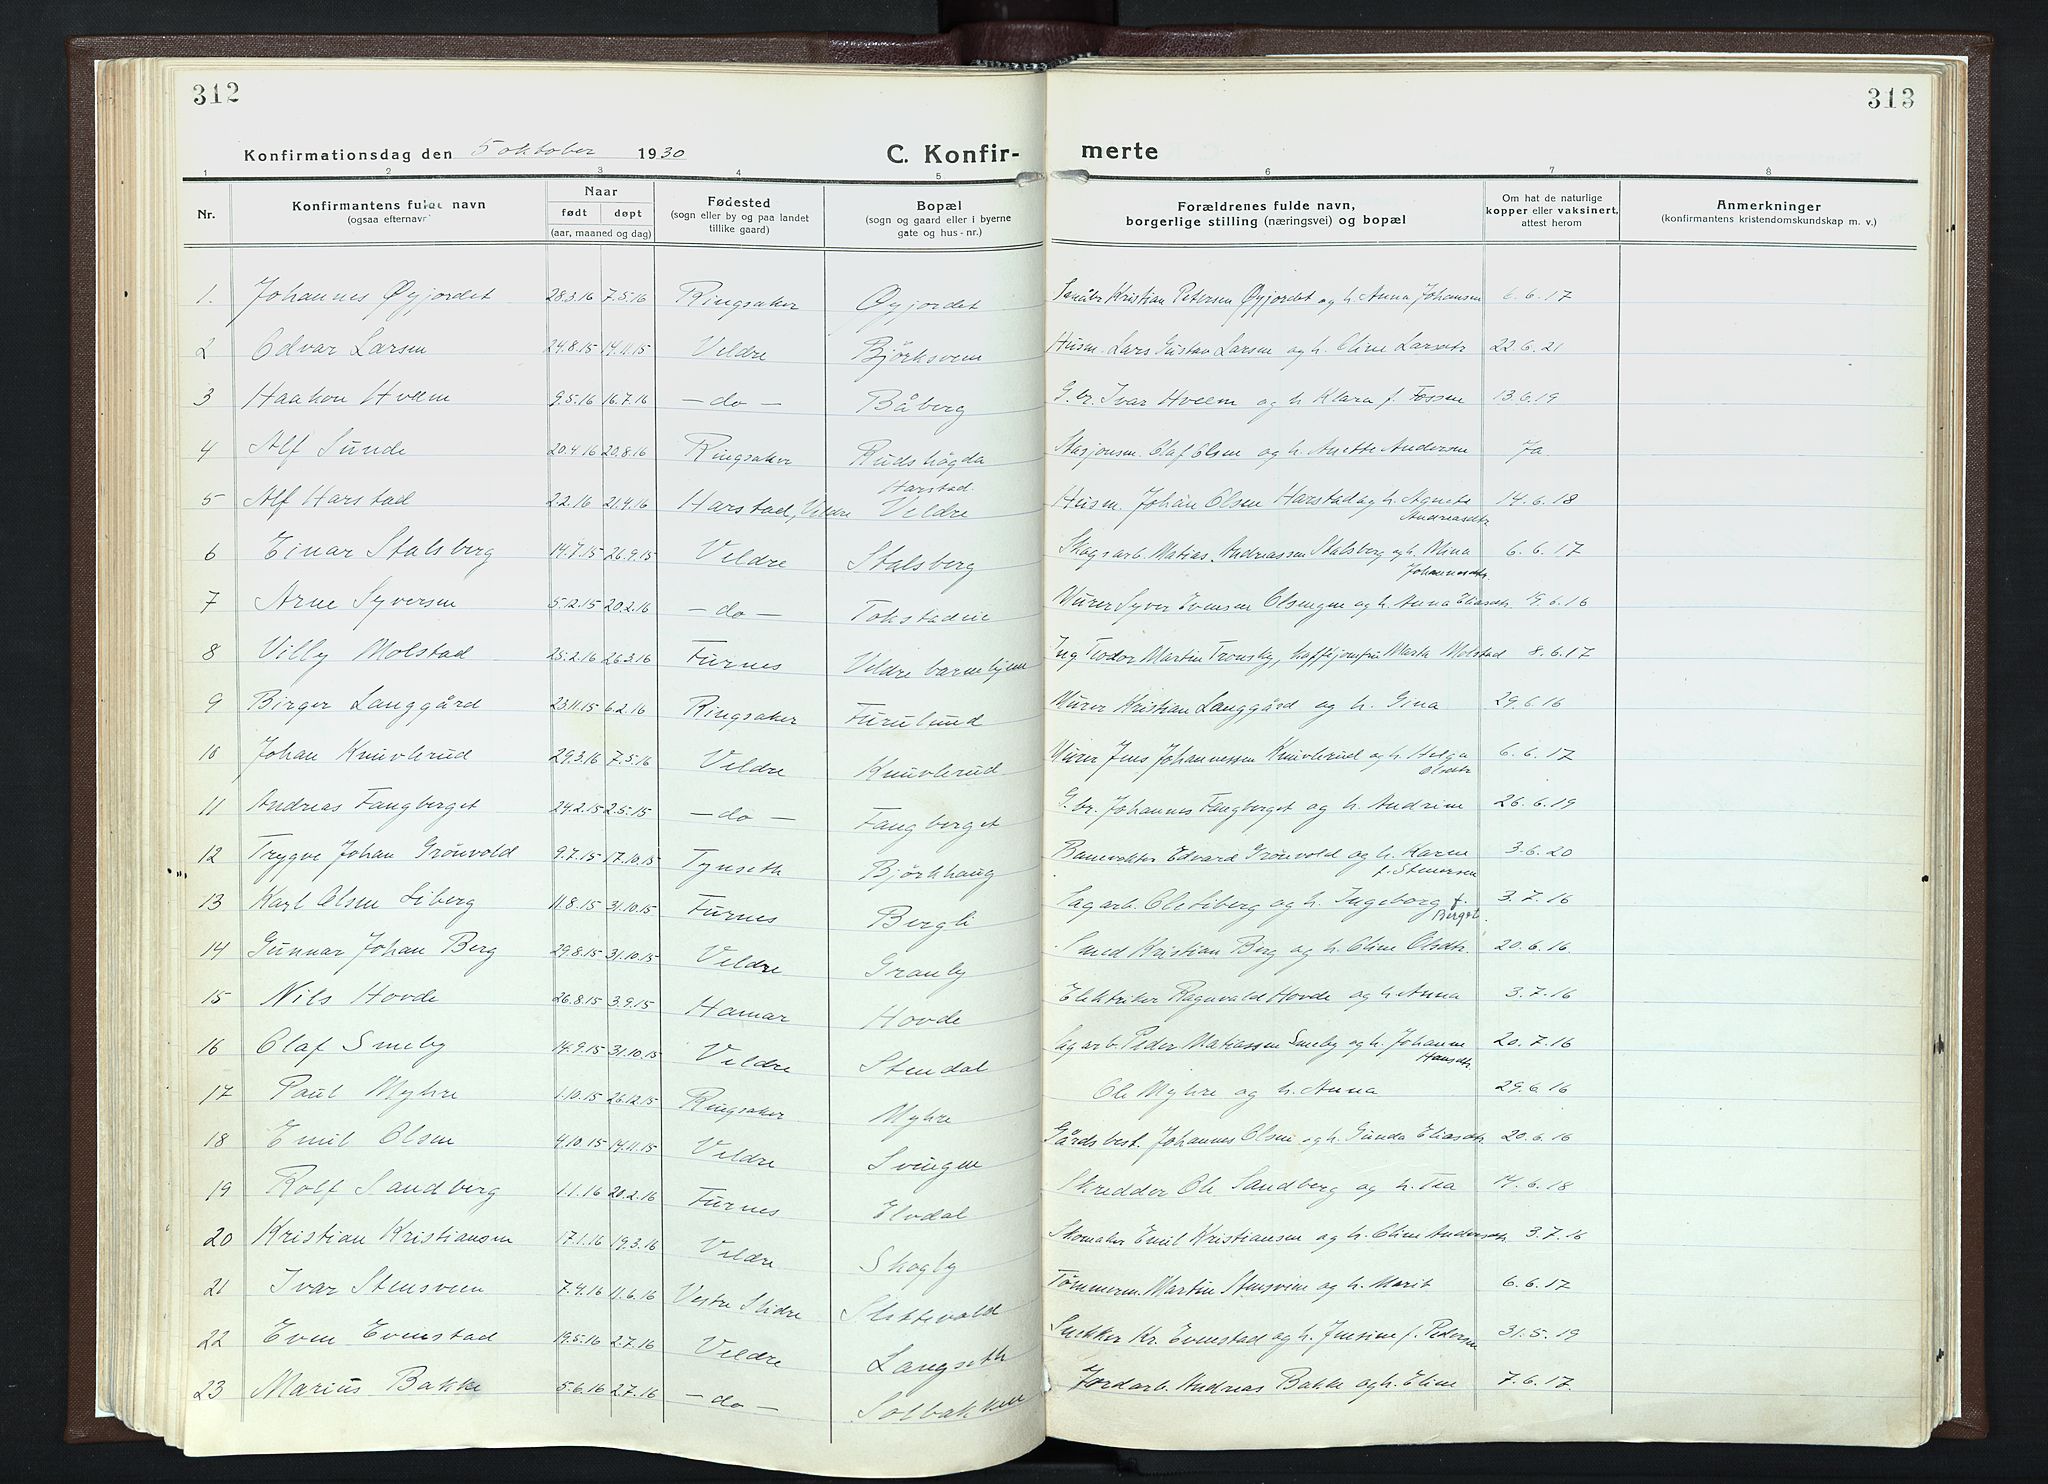 312
313
Konfirmationsdag den 5 oktober 1930
C. Konfir-
merte
1 2 3 4 5 6 7 8
Nr.
Konfirmantens fulde navn
(ogsaa efternavn)
Naar
født døpt
(aar, maaned og dag)
Fødested
(sogn eller by og paa landet
tillike gaard)
Bopæl
(sogn og gaard eller i byerne
gate og hus-nr.)
Forældrenes fulde navn,
borgerlige stilling (næringsvei) og bopæl
Om hat de naturlige
kopper eller vaksinert,
attest herom
Anmerkninger
(konfirmantens kristendomskundskap m. v.)
1. Johannes Øyjordet 28.3.16 7.5.16 Ringsaker Øyjordet Småbr. Kristian Petersen Øyjordet og h. Anna Johansen 6.6.17
2 Edvar Larsen 24.8.15 14.11.15 Veldre Björksveen Husm. Lars Gustav Larsen og h. Oline Larsdtr 22.6.21
3 Haakon Hveem 9.5.16 16.7.16 -do- Båberg G.br. Ivar Hveem og h. Klara f. Fossen 13.6.19
4 Alf Sunde 20.4.16 20.8.16 Ringsaker Rudshögda Stasjonsm. Olaf Olsen og h. Anette Andersen Ja
5 Alf Harstad 2.2.16 21.4.16 Harstad, Veldre Harstad. Veldre Husm. Johan Olsen Harstad og h. Agnete Andreasdtr 14.6.18
6 Einar Stalsberg 14.7.15 26.9.15 Veldre Stalsberg Skogsarb. Matias Andreassen Stalsberg og h. Mina Johannesdtr. 6.6.17
7 Arne Syversen 5.12.15 20.2.16 -do- Tokstadeie Murer Syver Evensen Olsengen og h. Anna Eliasdtr. 19.6.16
8 Villy Molstad 25.2.16 26.3.16 Furnes Veldre barnehjem Ing Teodor Martin Tronsby, Marta Molstad 8.6.17
9 Birger Langgård 23.11.15 6.2.16 Ringsaker Furulund Murer Kristian Langgård og h. Gina 29.6.16
10 Johan Knuvlerud 29.3.16 7.5.16 Veldre Knuvlerud Murer Jens Johannessen Knuvlerud og h. Helga Olsdtr 6.6.17
11 Andreas Fangberget 24.2.15 2.5.15 -do- Fangberget G.br. Johannes Fangberget og h. Andrine 26.6.19
12 Trygve Johan Grönvold 9.7.15 17.10.15 Tynseth Björkhaug Banevokter Edvard Grönvold og h. Karen f. Stenersen 3.6.20
13 Karl Olsen Liberg 11.8.15 31.10.15 Furnes Bergli Sagarb. Ole Liberg og h. Ingeborg f. Berget. 3.7.16
14 Gunnar Johan Berg 29.8.15 31.10.15 Veldre Granly Smed Kristian Berg og h. Oline Olsdtr. 20.6.16
15 Nils Hovde 26.8.15 3.9.15 Hamar Hovde Elektriker Ragnvald Hovde og h. Anna 3.7.16
16 Olaf Smeby 14.9.15 31.10.15 Veldre Stendal Sagarb. Peder Matiassen Smeby og h. Johanne Hansdtr. 20.7.16
17 Paul Myhre 1.10.15 26.12.15 Ringsaker Myhre Ole Myhre og h. Anna 29.6.16
18 Emil Olsen 4.10.15 14.11.15 Veldre Svingen Gårdsbest. Johannes Olsen og h. Gunda Eliasdtr. 20.6.16
19 Rolf Sandberg 1.1.16 20.2.16 Furnes Elvdal Skredder Ole Sandberg og h. Tea 14.6.18
20 Kristian Kristiansen 17.1.16 19.3.16 Veldre Skogly Skomaker Emil Kristiansen og h. Oline Andersdtr. 3.7.16
21 Ivar Stensveen 7.4.16 11.6.16 Vestre Slidre Slettevold Tömmerm. Martin Stensveen og h. Marit 6.6.17
22 Even Evenstad 19.5.16 2.7.16 Veldre Langseth Snekker Kr. Evenstad og h. Jensine f. Pedersen 31.5.19
23 Marius Bakke 5.6.16 2.7.16 -do- Solbakken Jordarb. Andreas Bakke og h. Eline 7.6.17.